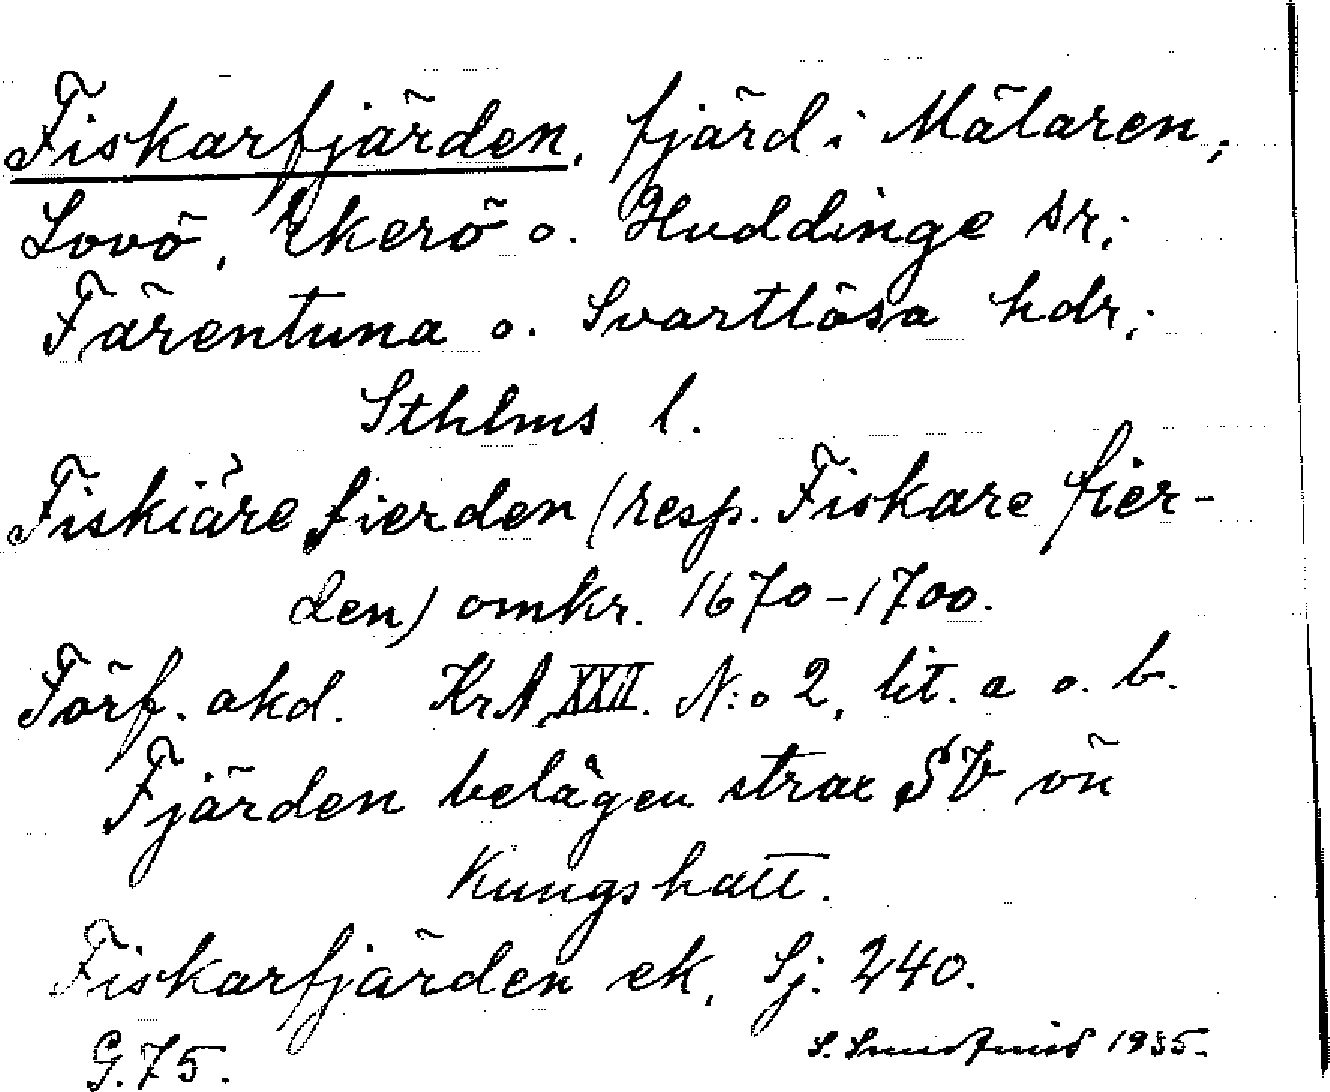 Fiskarfjärden, fjärd i Mälaren;
Lovö, Ekerö o. Huddinge sr;
Färentuna o. Svartlösa hdr;
Sthlms l.
Fiskiäre fierden (resp. Fiskare fier-
den) omkr. 1670-1700.
Förf. okd. KrA XXII. N:o 2, lit. a o. b.
Fjärden belägen strax SV om
Kungshatt.
Fiskarfjärden ek, Sj. 240.
G. 75.
S. 1935.